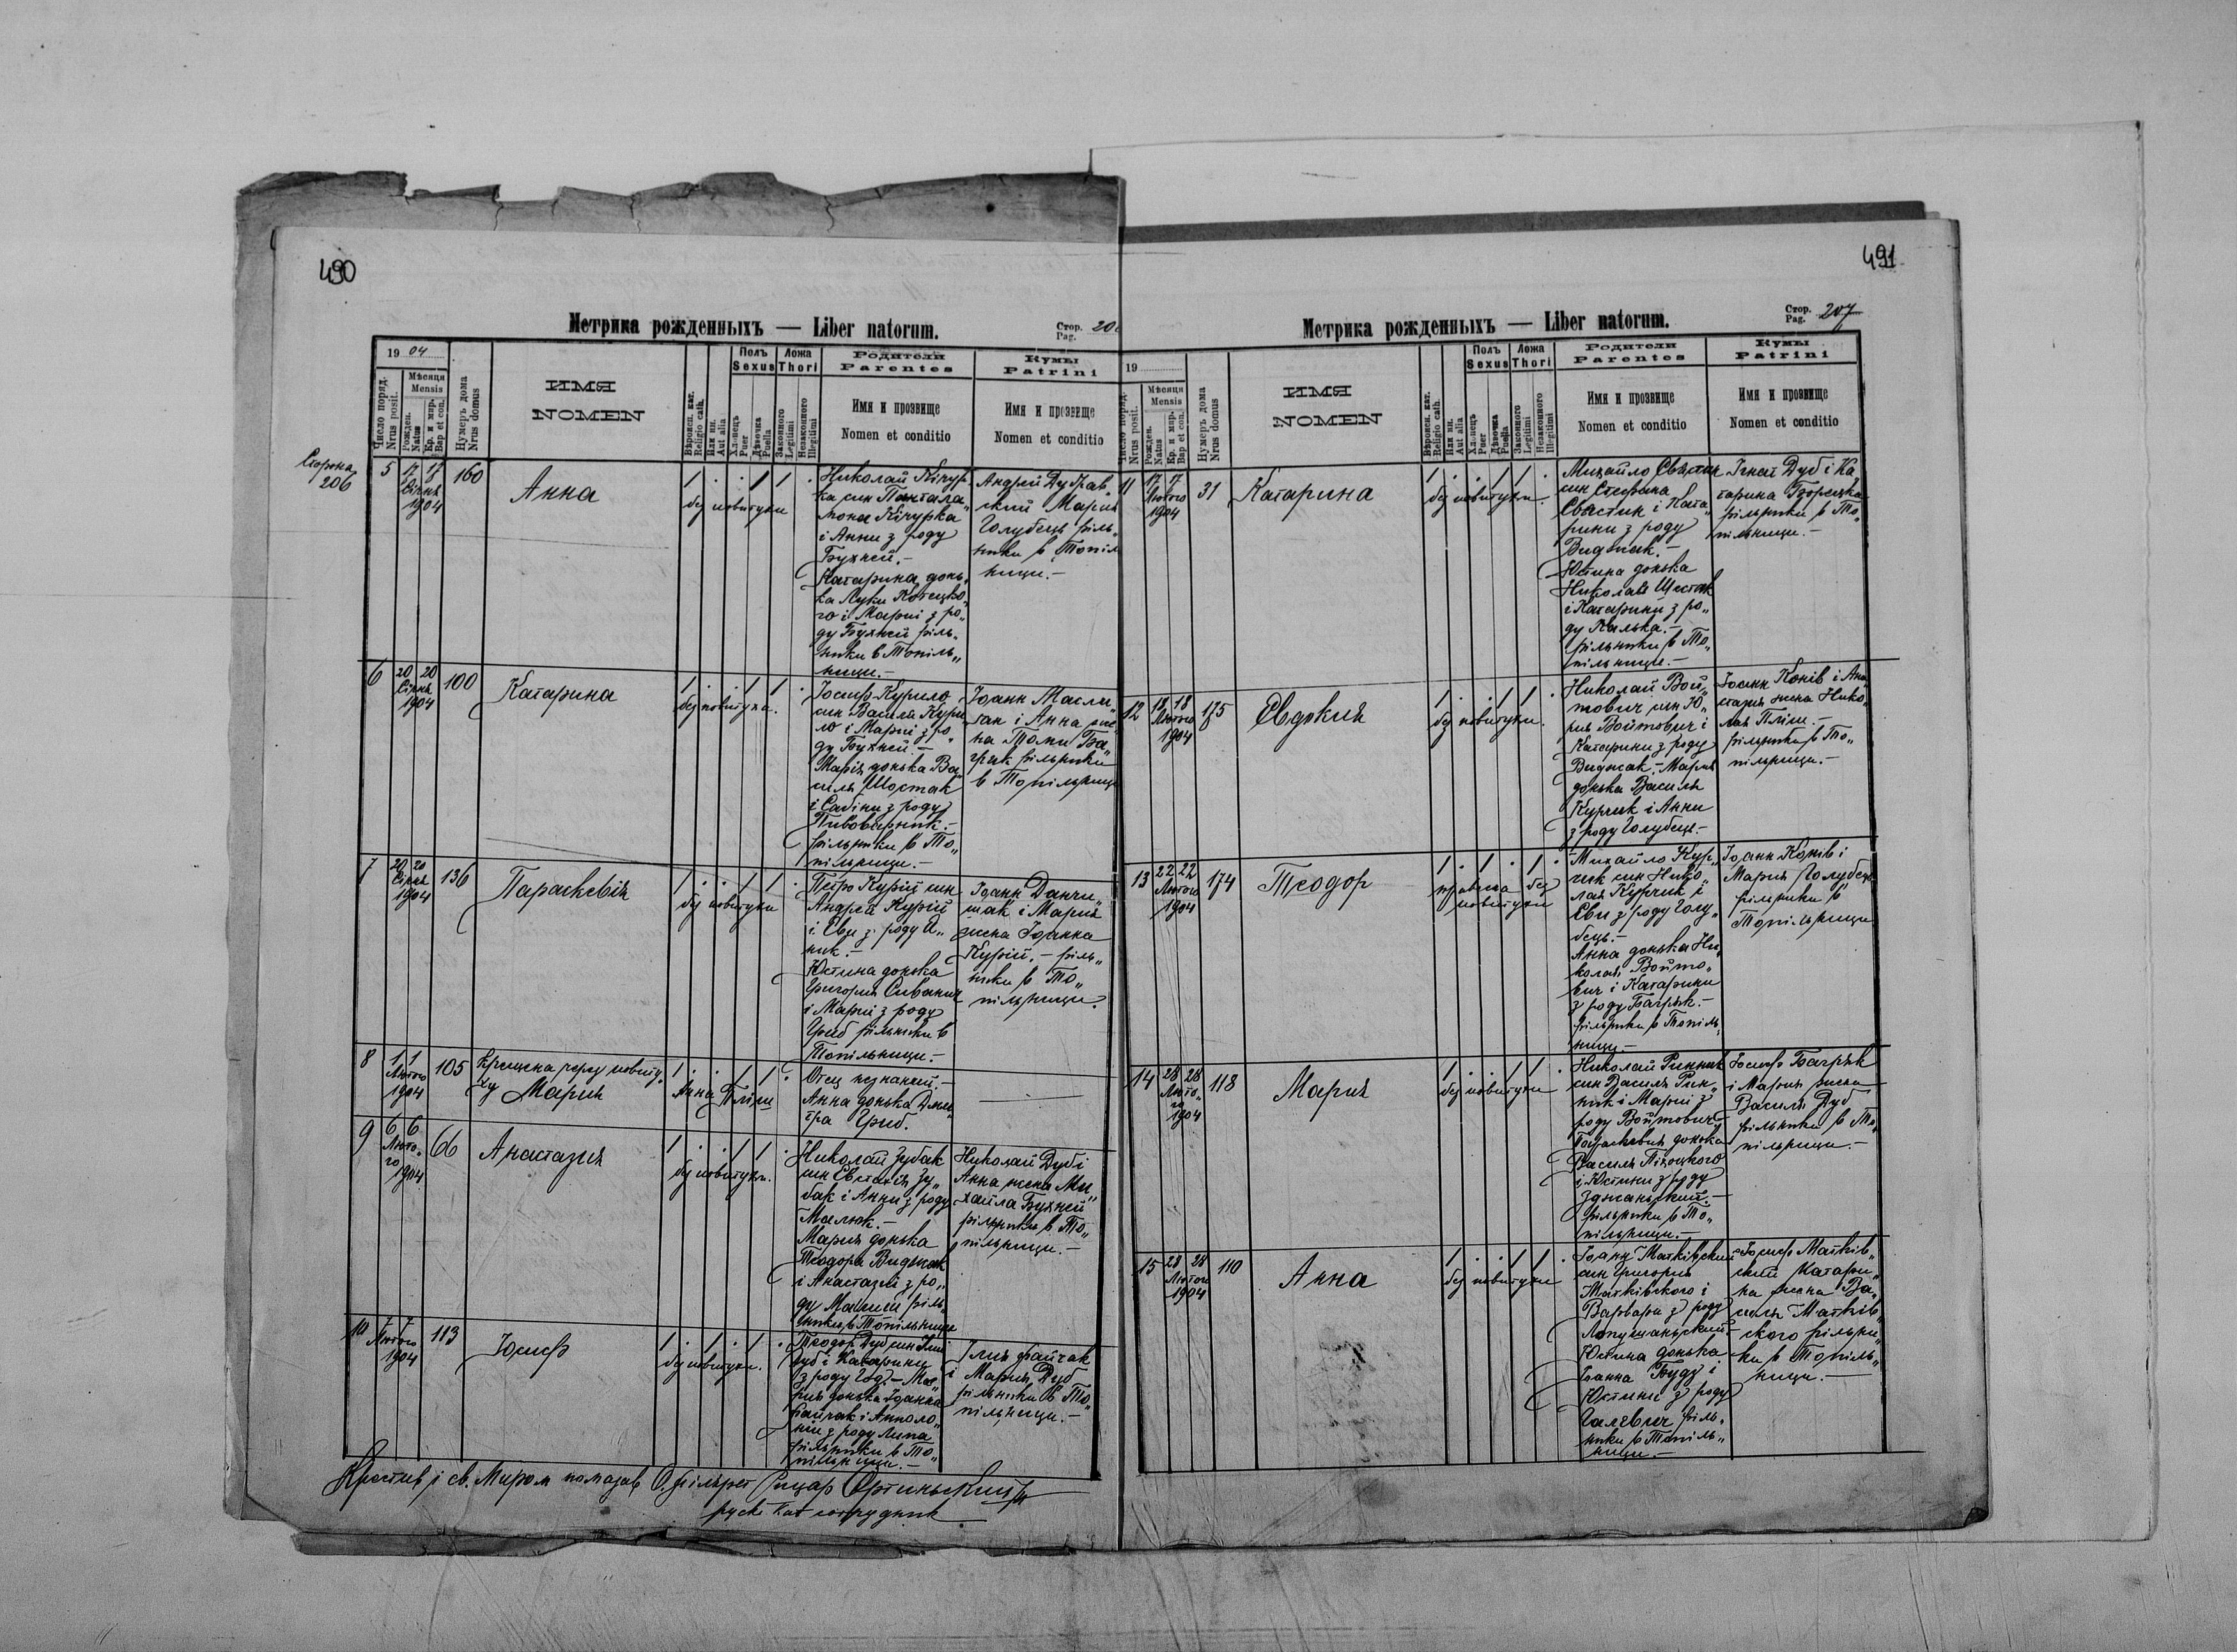 490
Метрика рожденныхъ — Liber natorum.
Стор. Pag. 20
19 04
Число поряд. Nrus posit.
Мѣсяця Mensis
Рожден. Natus
Кр. и мир. Bap et con.
Нумеръ дома Nrus domus
ИМЯ
NOMEN
Вѣроисп. кат. Religio cath.
Или ин. Aut alia
Полъ
Sexus
Хл-пецъ Puer
Дѣвочка Puella
Ложа
Thori
Законного Legitimi
Незаконного Illegitimi
Родители
Parentes
Имя и прозвище
Nomen et conditio
Кумы
Patrini
Имя и прозвище
Nomen et conditio
Сторона
206
5 17 17 160 Анна 1 . . 1 1 .
Січня
1904
без повитухи
Николай Кічур„
ка син Пантала„
мона Кічурка
і Анни з роду
Бухней.—
Катарина донь„
ка Луки Котецко„
го і Мариї з ро„
ду Бухней ріль„
ники в Топіль„
ници.—
Андрей Дубрав„
ский Мария
Голубець ріль„
ники в Топіл
ници.—
6 20 20 100 Катарина 1 . . 1 1 .
Січня
1904
без повитухи.
Йосиф Курило
син Василя Кури
ло і Марії з ро„
ду Бухней.—
Марія донька Ва„
силя Шостак
і Сабіни з роду
Пивоварник.—
рільники в То„
пільници.—
Іоанн Масли„
гак і Анна же„
на Томи Ба„
грик рільники
в Топільници
7 20 20 136 Параскевія 1 . . 1 1 .
Січня
1904
без повитухи
Петро Курій син
Андрея Курій
і Еви з роду
Юстина донька
Григория Сивак
і Марії з роду
Гриб рільники в
Топільници.—
Іоанн Данчи„
шак і Мария
жена Іоанна
Курій.— ріль„
ники в То„
пільници.
8 1 1 105 Крещена через повиту„
ху Мария 1 . . 1 . 1
Лютого
1904
Анна Пліш
Отец незнаний.—
Анна донька Дми„
тра Гриб.
9 6 6 66 Анастазия 1 . . 1 1 .
Люто„
го
1904
без повитухи.
Николай Зубак
син Евстахія Зу„
бак і Анни з роду
Малюк.—
Мария донька
Теодора Виджак
і Анастазиї з ро„
ду Малий ріль„
ники в Топільници
Николай Дуб і
Анна жена Ми„
хайла Бухней
рільники в То„
пільници.—
10 Лютого 113 Йосиф 1 . 1 . 1 .
1904
без повитухи.
Теодор Дуб син Ілиї
Дуб і Катарини
з роду Год.— Ма„
рия донька Іоанна
Файчак і Апполо„
нії з роду Липа
рільники в То„
пільници.—
Ілия Файчак
і Мария Дуб
рільники в То„
пільници.—
Крестив і св. Миром помазав О. Ришар Ортиньский
руск кат сотрудник
491
Метрика рожденныхъ — Liber natorum.
Стор. Pag. 207
19
Число поряд. Nrus posit.
Мѣсяця Mensis
Рожден. Natus
Кр. и мир. Bap et con.
Нумеръ дома Nrus domus
ИМЯ
NOMEN
Вѣроисп. кат. Religio cath.
Или ин. Aut alia
Полъ
Sexus
Хл-пецъ Puer
Дѣвочка Puella
Ложа
Thori
Законного Legitimi
Незаконного Illegitimi
Родители
Parentes
Имя и прозвище
Nomen et conditio
Кумы
Patrini
Имя и прозвище
Nomen et conditio
11 17 17 31 Катарина 1 . . 1 1 .
Лютого
1904
без повитухи.
Михайло Свястин
син Стефана
Свястин і Ката„
рини з роду
Виджак.—
Юстина донька
Николая Шостак
і Катарини з ро„
ду Калька.—
рільники в То„
пільници.—
Ігнат Дуб і Ка
тарина Згорецка
рільники в То„
пільници.—
12 18 18 175 Евдокия 1 . . 1 1 .
Лютого
1904
без повитухи.
Николай Вой„
тович син Ю„
рия Войтович і
Катарини з роду
Виджак.— Мария
донька Василя
Курчик і Анни
з роду Голубець.—
Іоанн Конів і Ана
стазия жена Нико„
лая Пліш.—
рільники в То„
пільници.—
13 22 22 174 Теодор 1 . 1 . 1 .
Лютого
1904
без
повитухи
Михайло Кур„
чик син Нико„
лая Курчик і
Еви з роду Голу„
бець.—
Анна донька Ни„
колая Войто„
вич і Катарини
з роду Багрик.—
рільники в Топіль„
ници.—
Іоанн Конів і
Мария Голубець
рільники в
Топільници
14 28 28 118 Мария 1 . . 1 1 .
Люто„
го
1904
без повитухи
Николай Ринник
син Василя Рин„
ник і Марії з
роду Войтович.—
Параскевия донька
Василя Піноцкого
і Юстини з роду
Зджаньский.—
рільники в То„
пільници.—
Йосиф Багрик
і Мария жена
Василя Дуб
рільники в То„
пільници.—
15 28 28 110 Анна 1 . . 1 1 .
Лютого
1904
без повитухи
Іоанн Матківский
син Григория
Матківского і
Варвари з роду
Лопушаньский.—
Юстина донька
Іоанна Будз і
Юстини з роду
Галевич ріль„
ники в Топіль„
ници.—
Йосиф Матків„
ский Катари„
на жена Ва„
силя Матків„
ского рільни„
ки в Топіль„
ници.—